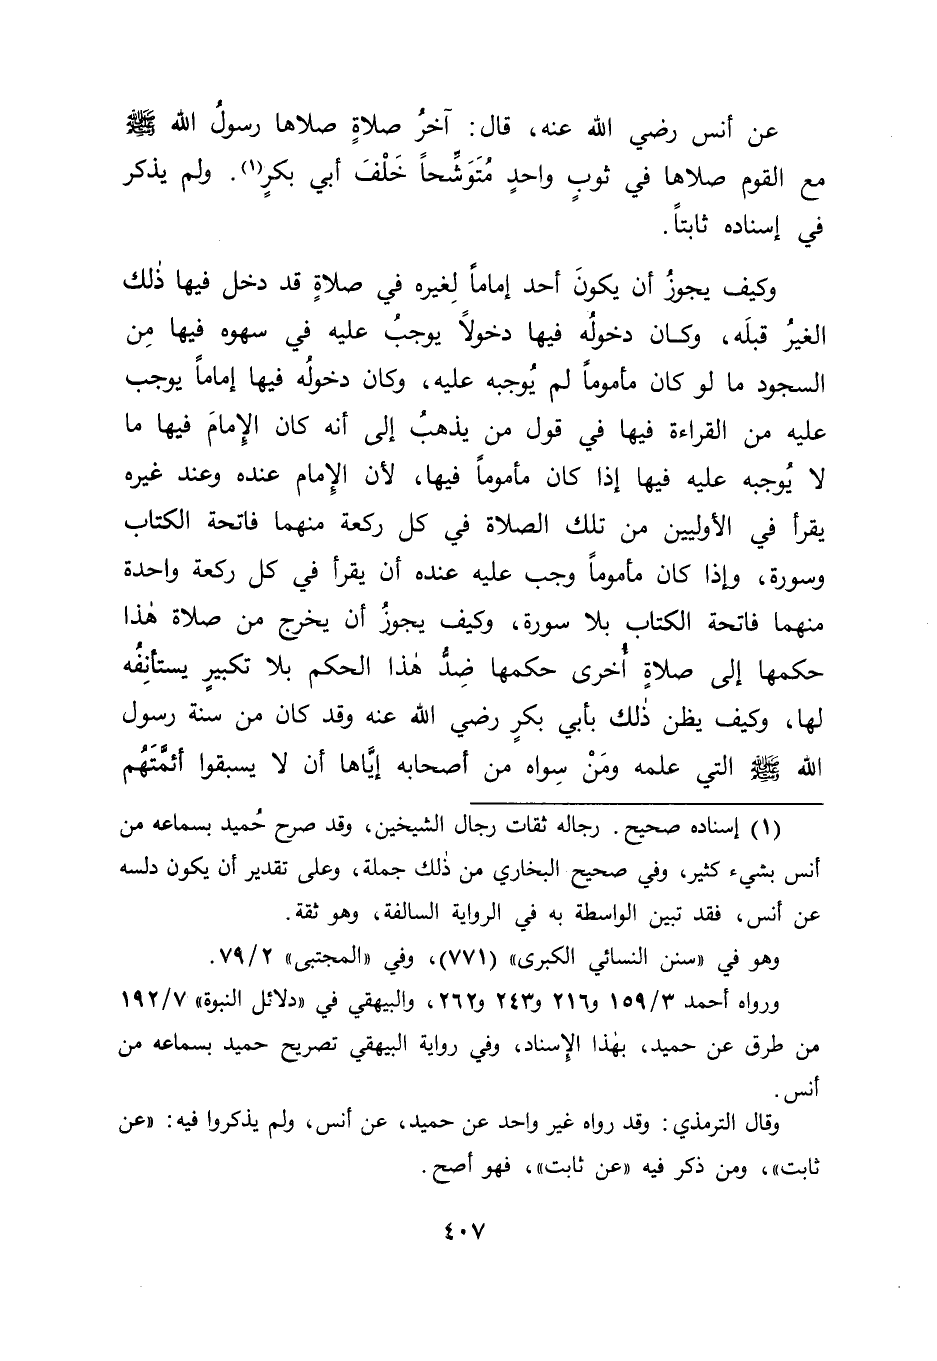 عن أنس رضي الله عنه، قال: آخرُ صلاةٍ صلاها رسولُ الله ﷺ
مع القوم صلاها في ثوبٍ واحدٍ مُتَوَشِّحاً خَلْفَ أبي بكرٍ(١). ولم يذكر
في إسناده ثابتاً.
وكيف يجوزُ أن يكونَ أحد إماماً لِغيره في صلاةٍ قد دخل فيها ذٰلك
الغيرُ قبلَه، وكان دخولُه فيها دخولاً يوجبُ عليه في سهوه فيها مِن
السجود ما لو كان مأموماً لم يُوجبه عليه، وكان دخولُه فيها إماماً يوجب
عليه من القراءة فيها في قول من يذهبُ إلى أنه كان الإِمامَ فيها ما
لا يُوجبه عليه فيها إذا كان مأموماً فيها، لأن الإِمام عنده وعند غيره
يقرأ في الأوليين من تلك الصلاة في كل ركعة منهما فاتحة الكتاب
وسورة، وإذا كان مأموماً وجب عليه عنده أن يقرأ في كل ركعة واحدة
منهما فاتحة الكتاب بلا سورة، وكيف يجوزُ أن يخرج من صلاة هٰذا
حكمها إلى صلاةٍ أُخرى حكمها ضِدُّ هٰذا الحكم بلا تكبيرٍ يستأنِفُه
لها، وكيف يظن ذٰلك بأبي بكرٍ رضي الله عنه وقد كان من سنة رسول
الله ﷺ التي علمه ومَنْ سِواه من أصحابه إيَّاها أن لا يسبقوا أئمَّتَهُم
(١) إسناده صحيح. رجاله ثقات رجال الشيخين، وقد صرح حُميد بسماعه من
أنس بشيء كثير، وفي صحيح البخاري من ذٰلك جملة، وعلى تقدير أن يكون دلسه
عن أنس، فقد تبين الواسطة به في الرواية السالفة، وهو ثقة.
وهو في «سنن النسائي الكبرى» (٧٧١)، وفي «المجتبى» ٧٩/٢.
ورواه أحمد ١٥٩/٣ و٢١٦ و٢٤٣ و٢٦٢، والبيهقي في «دلائل النبوة» ١٩٢/٧
من طرق عن حميد، بهٰذا الإِسناد، وفي رواية البيهقي تصريح حميد بسماعه من
أنس.
وقال الترمذي: وقد رواه غير واحد عن حميد، عن أنس، ولم يذكروا فيه: «عن
ثابت»، ومن ذكر فيه «عن ثابت»، فهو أصح.
٤٠٧